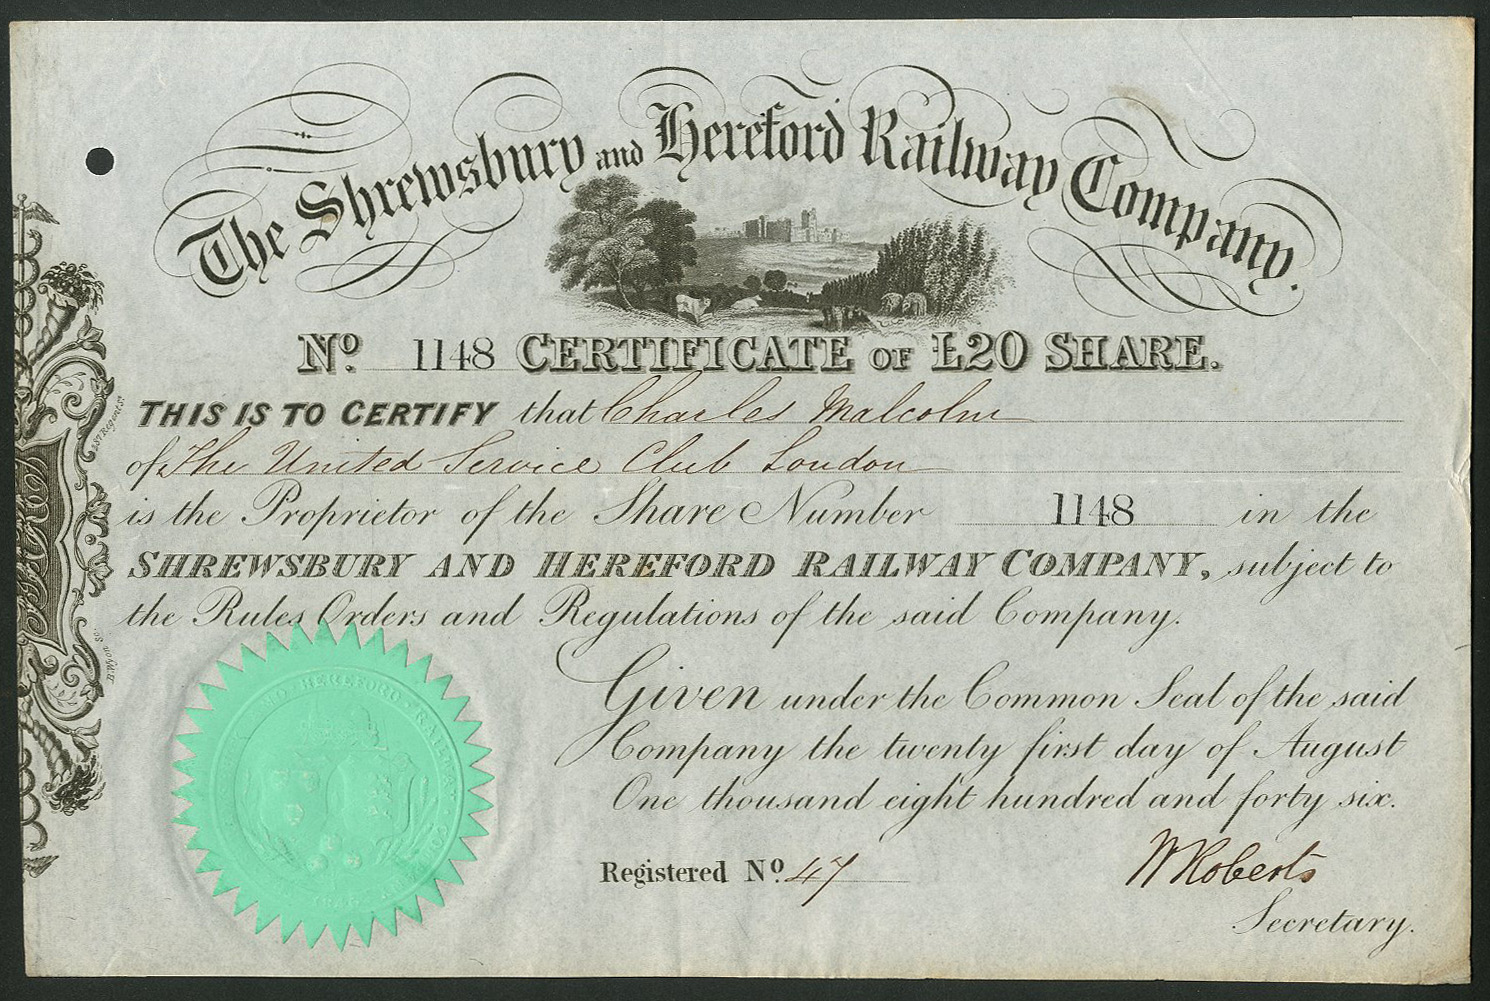 The Shrewsbury and Hereford Railway Company.
No. 1148 CERTIFICATE OF £20 SHARE.
THIS IS TO CERTIFY that Charles Malcolm
of The United Service Club London
is the Proprietor of the Share Number 1148 in the
SHREWSBURY AND HEREFORD RAILWAY COMPANY, subject to
the Rules Orders and Regulations of the said Company.
Given under the Common Seal of the said
Company the twenty first day of August
One thousand eight hundred and forty six.
Registered No. 47
W Roberts
Secretary.
HEREFORD RAILWAY